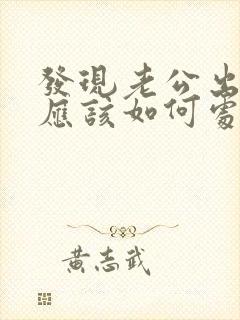 發現老公出
應該如何處
黃志武